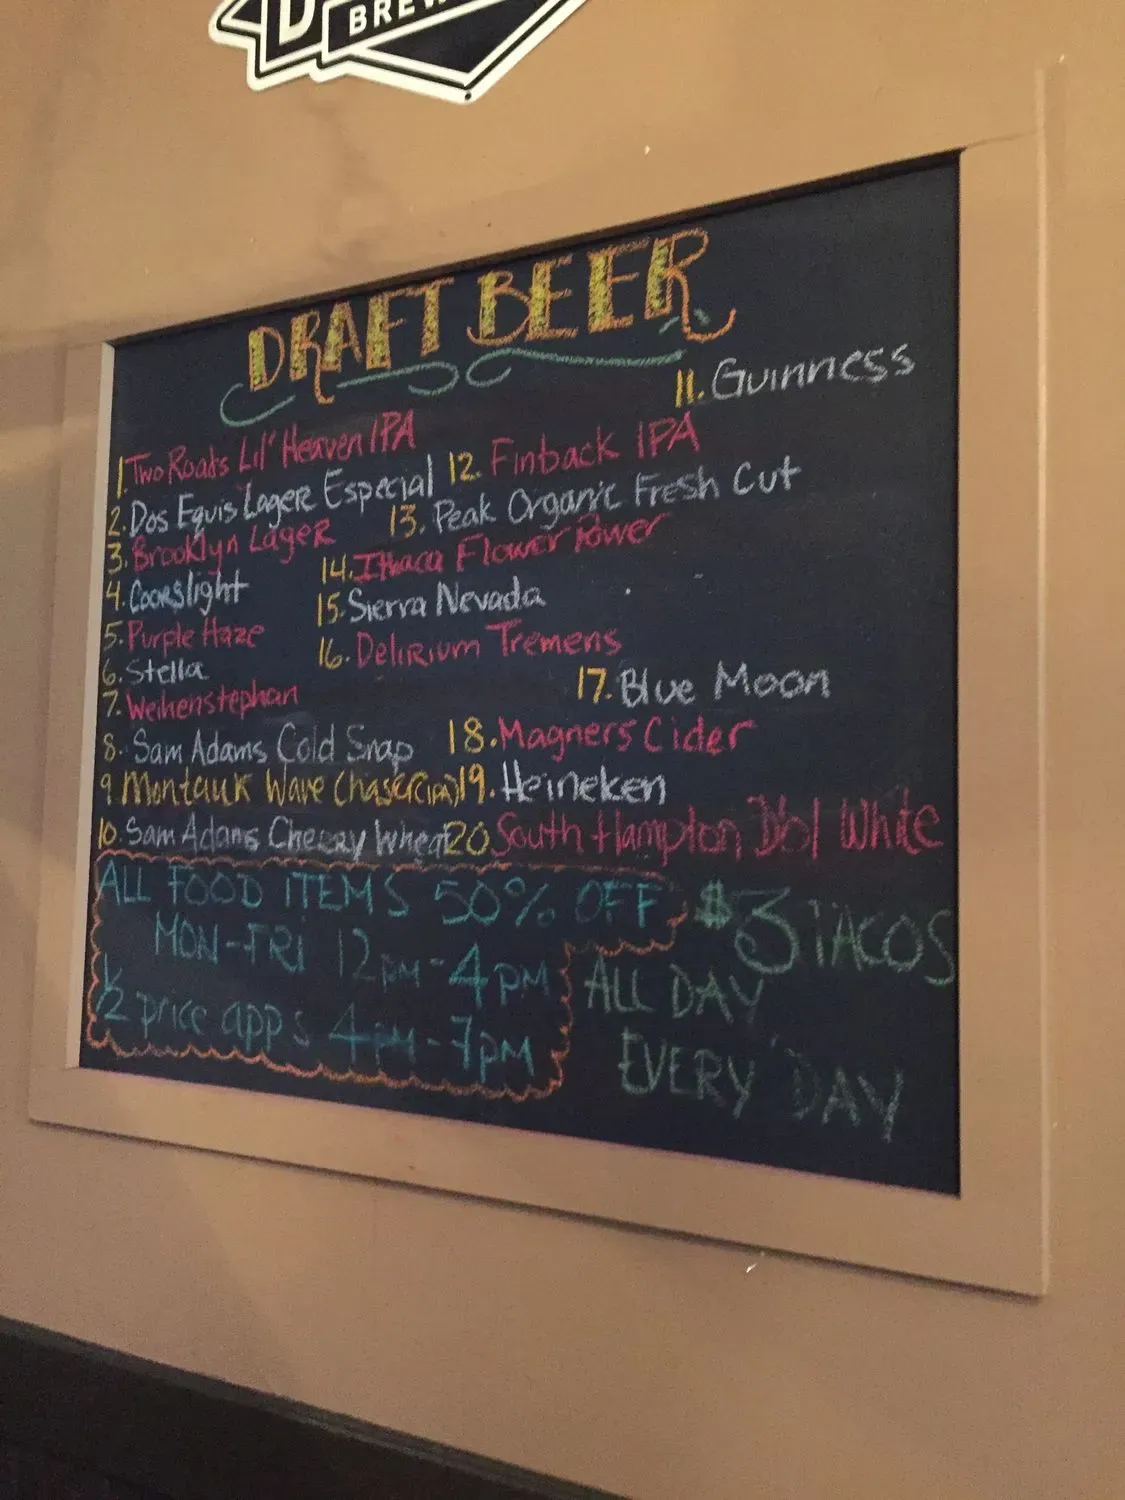 BREW
DRAFT BEER
1. Two Roads Lil' Heaven IPA
2. Dos Equis Lager Especial
3. Brooklyn Lager
4. Coorslight
5. Purple Haze
6. Stella
7. Weihenstephan
8. Sam Adams Cold Snap
9. Montauk Wave Chaser (IPA)
10. Sam Adams Cherry Wheat
11. Guinness
12. Finback IPA
13. Peak Organic Fresh Cut
14. Ithaca Flower Power
15. Sierra Nevada
16. Delirium Tremens
17. Blue Moon
18. Magners Cider
19. Heineken
20 South Hampton Dbl White
ALL FOOD ITEMS 50% OFF
MON-FRI 12PM-4PM
1/2 price apps 4PM-7PM
$3 TACOS
ALL DAY
EVERY DAY